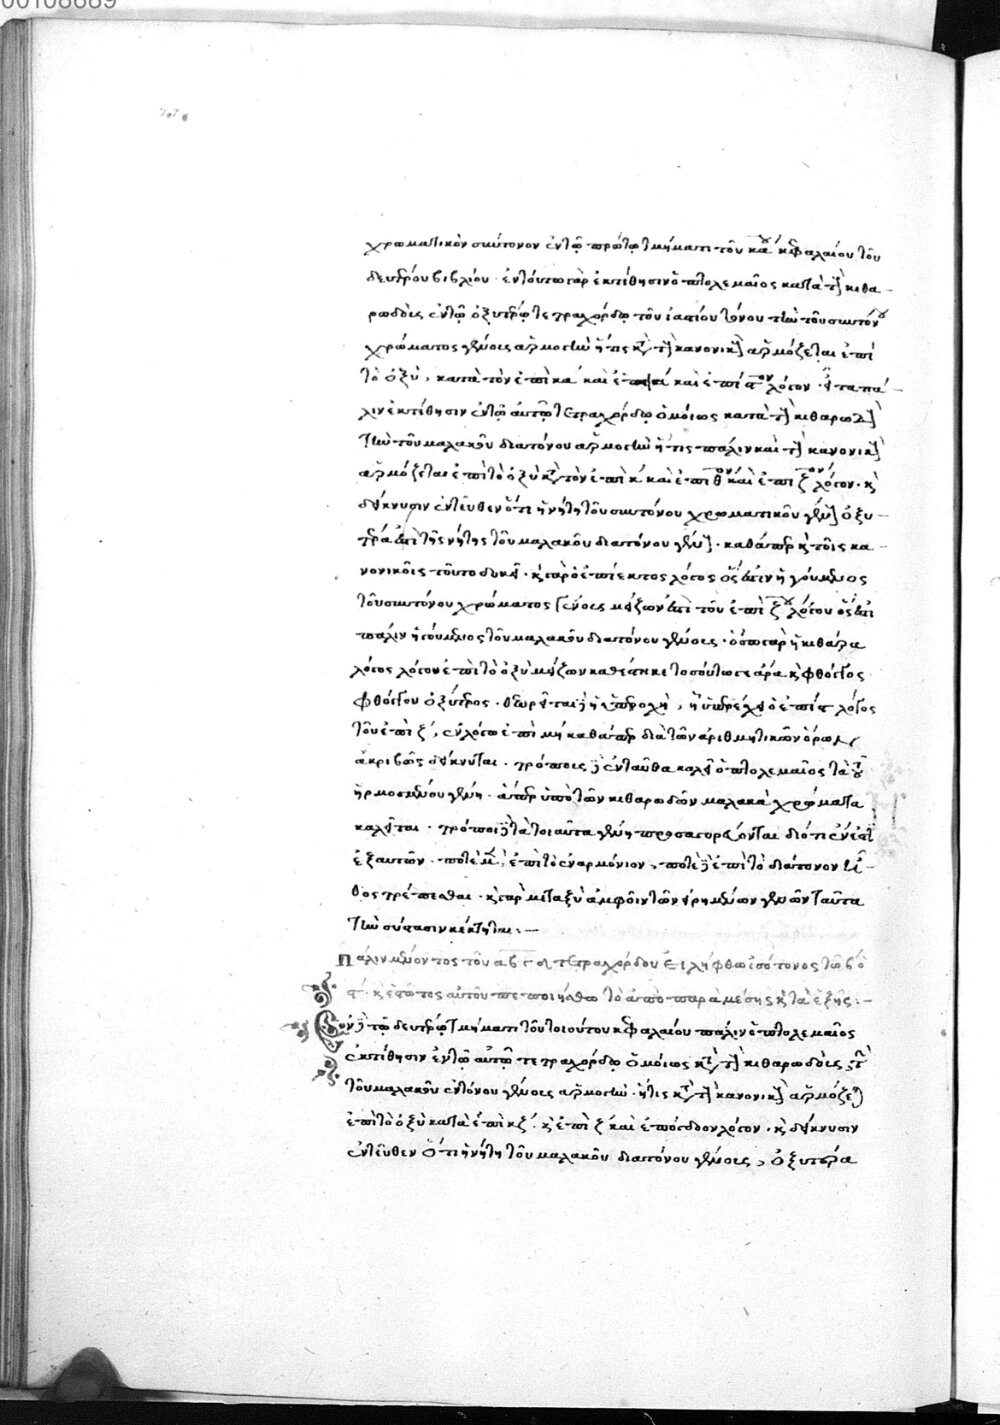 00108689
χρωματικὸν σύντονον ἐν τῷ πρώτῳ τμήματι τοῦ κα ου κεφαλαίου τοῦ
δευτέρου βιβλίου · ἐν τούτω γὰρ ἐκτίθησιν ὁ πτολεμαῖος κατὰ τὴν κιθα-
ρωδοῖς ἐν τῷ ὀξυτέρῳ τετραχόρδῳ τοῦ ἰαστίου τόνου τὴν τοῦ συντόνου
χρώματος γένους ἁρμογὴν ἥτις κατὰ τὴν κανονικὴν ἁρμόζεται ἐπὶ
τὸ ὀξὺ, κατὰ τὸν ἐπὶ κα καὶ ἐπὶ ια καὶ ἐπὶ ϛ ον λόγον · εἶτα πά-
λιν ἐκτίθησιν ἐν τῷ αὐτῷ τετραχόρδῳ ὁμοίως κατὰ τὴν κιθαρωδὴν
τὴν τοῦ μαλακοῦ διατόνου ἁρμογὴν ἥτις πάλιν καὶ τὴν κανονικὴν
ἁρμόζεται ἐπὶ τὸ ὀξὺ κατὰ τὸν ἐπὶ κ καὶ ἐπὶ θ ον καὶ ἐπὶ ζ ον λόγον · καὶ
δείκνυσιν ἐντεῦθεν ὅτι ἡ νήτη τοῦ συντόνου χρωματικοῦ γένους ὀξυ-
τέρα ἐστὶ τῆς νήτης τοῦ μαλακοῦ διατόνου γένους · καθάπερ καὶ τοῖς κα-
νονικοῖς τοῦτο δοκεῖ · καὶ γὰρ ὁ ἐπίεκτος λόγος ὅς ἐστιν ἡγούμενος
τοῦ συντόνου χρώματος γένους μείζων ἐστὶ τοῦ ἐπὶ ζ ου λόγου ὅς ἐστι
πάλιν ἡγούμενος τοῦ μαλακοῦ διατόνου γένους · ὅσω γὰρ ἡ κιθάρα
λόγος λόγον ἐπὶ τὸ ὀξὺ μείζων καθέστηκε τοσούτω γε ἄρα καὶ φθόγγος
φθόγγου ὀξύτερος · θεωρεῖται δὲ ἡ ὑπεροχὴ, ἧ ὑπερέχει ὁ ἐπὶ ϛ λόγος
τοῦ ἐπὶ ζ, ἐν λόγω ἐπὶ μη καθάπερ διὰ τῶν ἀριθμητικῶν ὅρων
ἀκριβῶς δείκνυται · τρόποις δὲ ἐνταῦθα καλεῖ ὁ πτολεμαῖος τὰ τοῦ
ἡρμοσμένου γένη · ἅπερ ὑπὸ τῶν κιθαρωδῶν μαλακὰ χρώματα
καλεῖται · τρόποι δὲ τὰ τοιαῦτα γένη προσαγορεύονται διότι ἔνεστι
ἐξ αὐτῶν · ποτὲ μὲν, ἐπὶ τὸ ἐναρμόνιον, ποτὲ δὲ ἐπὶ τὸ διάτονον
θος τρέπεσθαι · καὶ γὰρ μεταξὺ ἀμφοῖν τῶν εἰρημένων γενῶν ταῦτα
τὴν σύστασιν κέκτηται :-
Πάλιν μένοντος τοῦ α β γ δ τετραχόρδου εἰλήφθω ἰσότονος τῶ β ὁ
ϛ · καὶ ἐφ τος αὐτοῦ πεποιήσθω τὸ ἀπὸ παραμέσης κατὰ ἑξῆς :-
Ἐν δὲ τῷ δευτέρῳ τμήματι τοῦ τοιούτου κεφαλαίου πάλιν ὁ πτολεμαῖος
ἐκτίθησιν ἐν τῷ αὐτῷ τετραχόρδῳ ὁμοίως κατὰ τὴν κιθαρωδοῖς τὴν
τοῦ μαλακοῦ ἐντόνου γένους ἁρμογὴν · ἥτις κατὰ τὴν κανονικὴν ἁρμόζεται
ἐπὶ τὸ ὀξὺ κατὰ ἐπὶ κζ · καὶ ἐπὶ ζ καὶ ἐπόγδοον λόγον · καὶ δείκνυσιν
ἐντεῦθεν ὅτι ἡ νήτη τοῦ μαλακοῦ διατόνου γένους, ὀξυτέρα